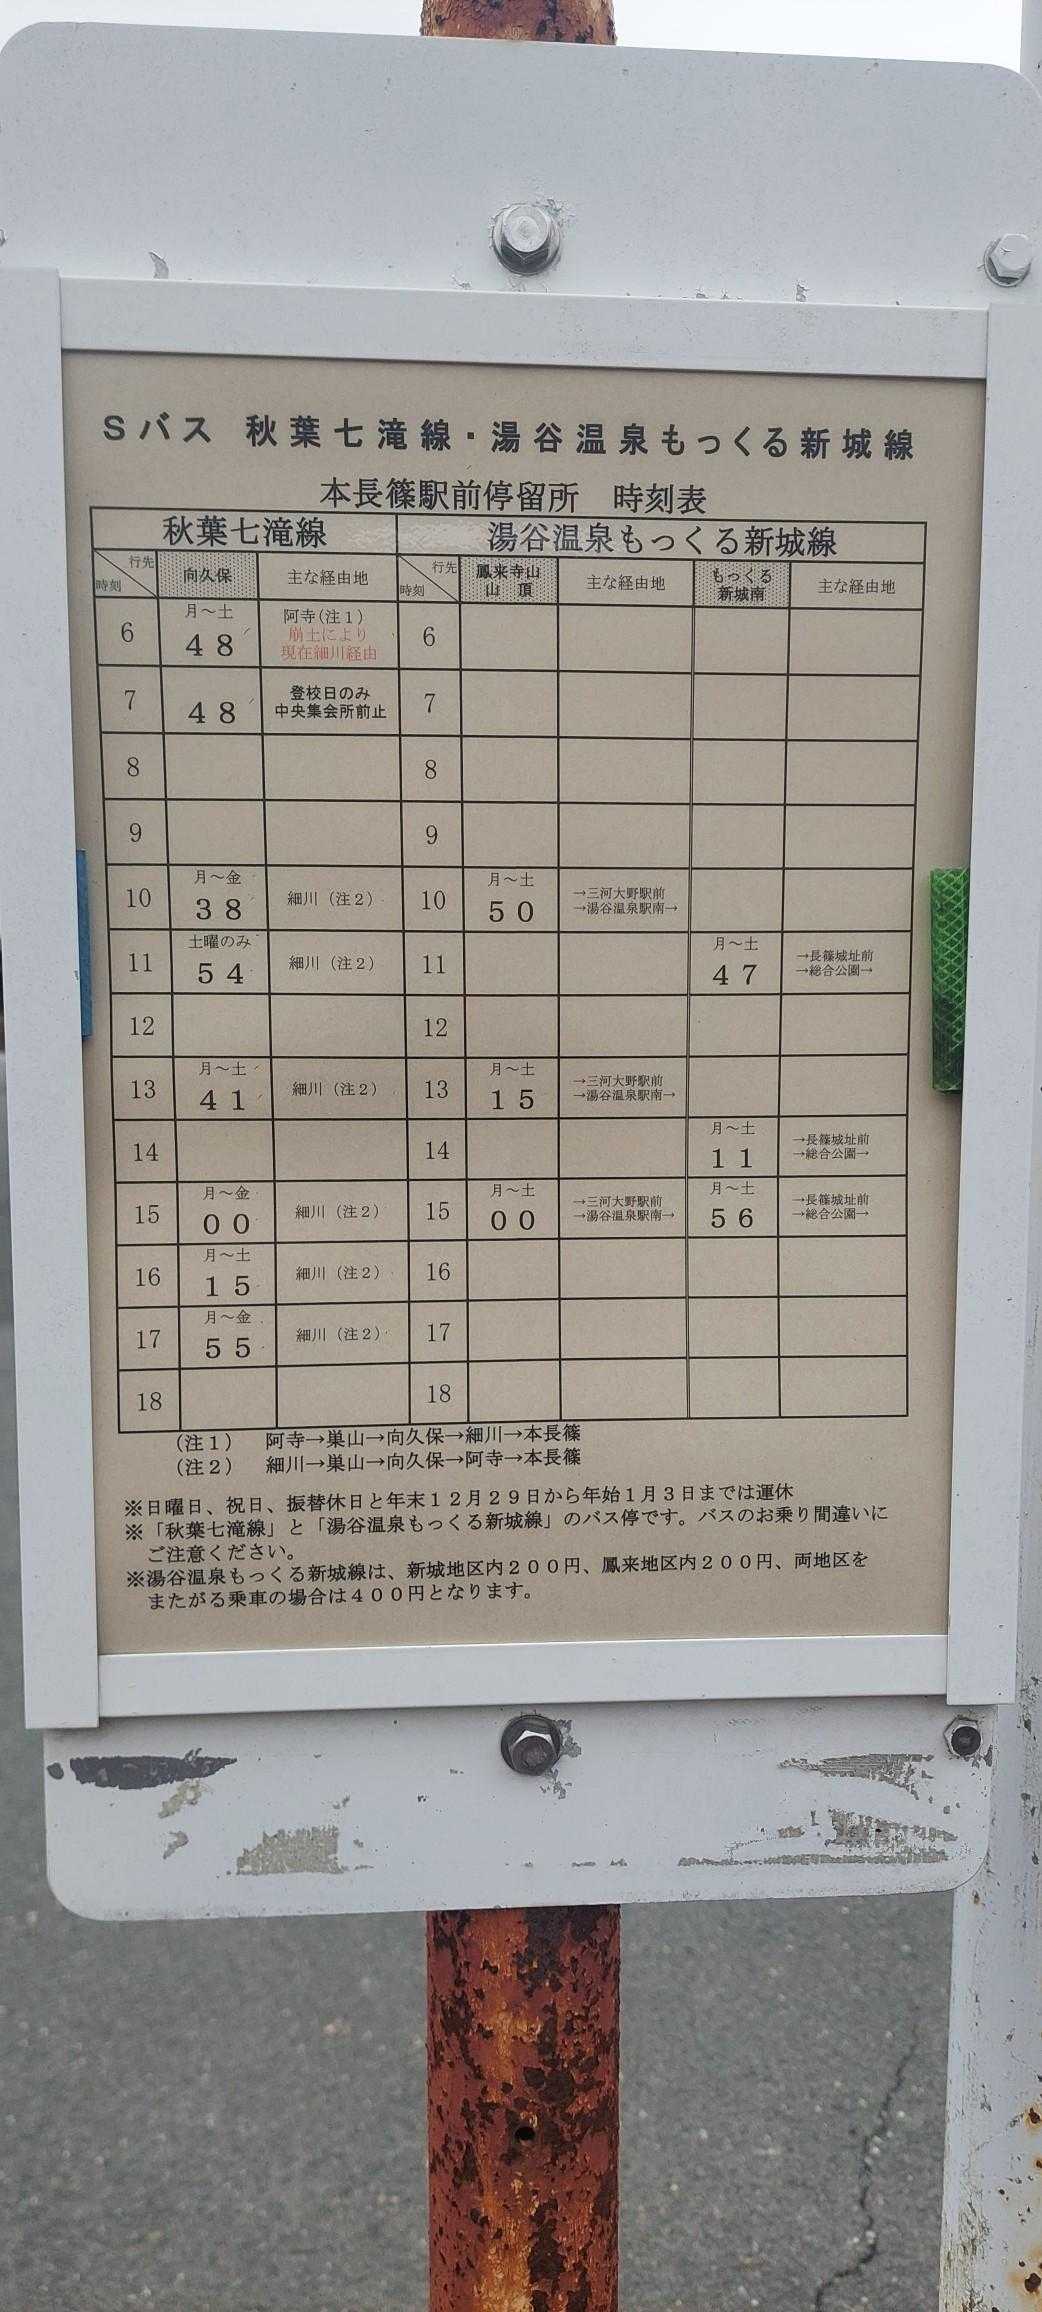 Sバス 秋葉七滝線・湯谷温泉もっくる新城線
本長篠駅前停留所 時刻表
秋葉七滝線 湯谷温泉もっくる新城線
行先 時刻 向久保 主な経由地 行先 時刻 鳳来寺山山頂 主な経由地 もっくる新城南 主な経由地
6 月～土 48 阿寺(注1) 崩土により現在細川経由 6
7 48 登校日のみ 中央集会所前止 7
8 8
9 9
10 月～金 38 細川(注2) 10 月～土 50 →三河大野駅前→湯谷温泉駅南→
11 土曜のみ 54 細川(注2) 11 月～土 47 →長篠城址前→総合公園→
12 12
13 月～土 41 細川(注2) 13 月～土 15 →三河大野駅前→湯谷温泉駅南→
14 14 月～土 11 →長篠城址前→総合公園→
15 月～金 00 細川(注2) 15 月～土 00 →三河大野駅前→湯谷温泉駅南→ 月～土 56 →長篠城址前→総合公園→
16 月～土 15 細川(注2) 16
17 月～金 55 細川(注2) 17
18 18
(注1) 阿寺→巣山→向久保→細川→本長篠
(注2) 細川→巣山→向久保→阿寺→本長篠
※日曜日、祝日、振替休日と年末12月29日から年始1月3日までは運休
※「秋葉七滝線」と「湯谷温泉もっくる新城線」のバス停です。バスのお乗り間違いに
ご注意ください。
※湯谷温泉もっくる新城線は、新城地区内200円、鳳来地区内200円、両地区を
またがる乗車の場合は400円となります。